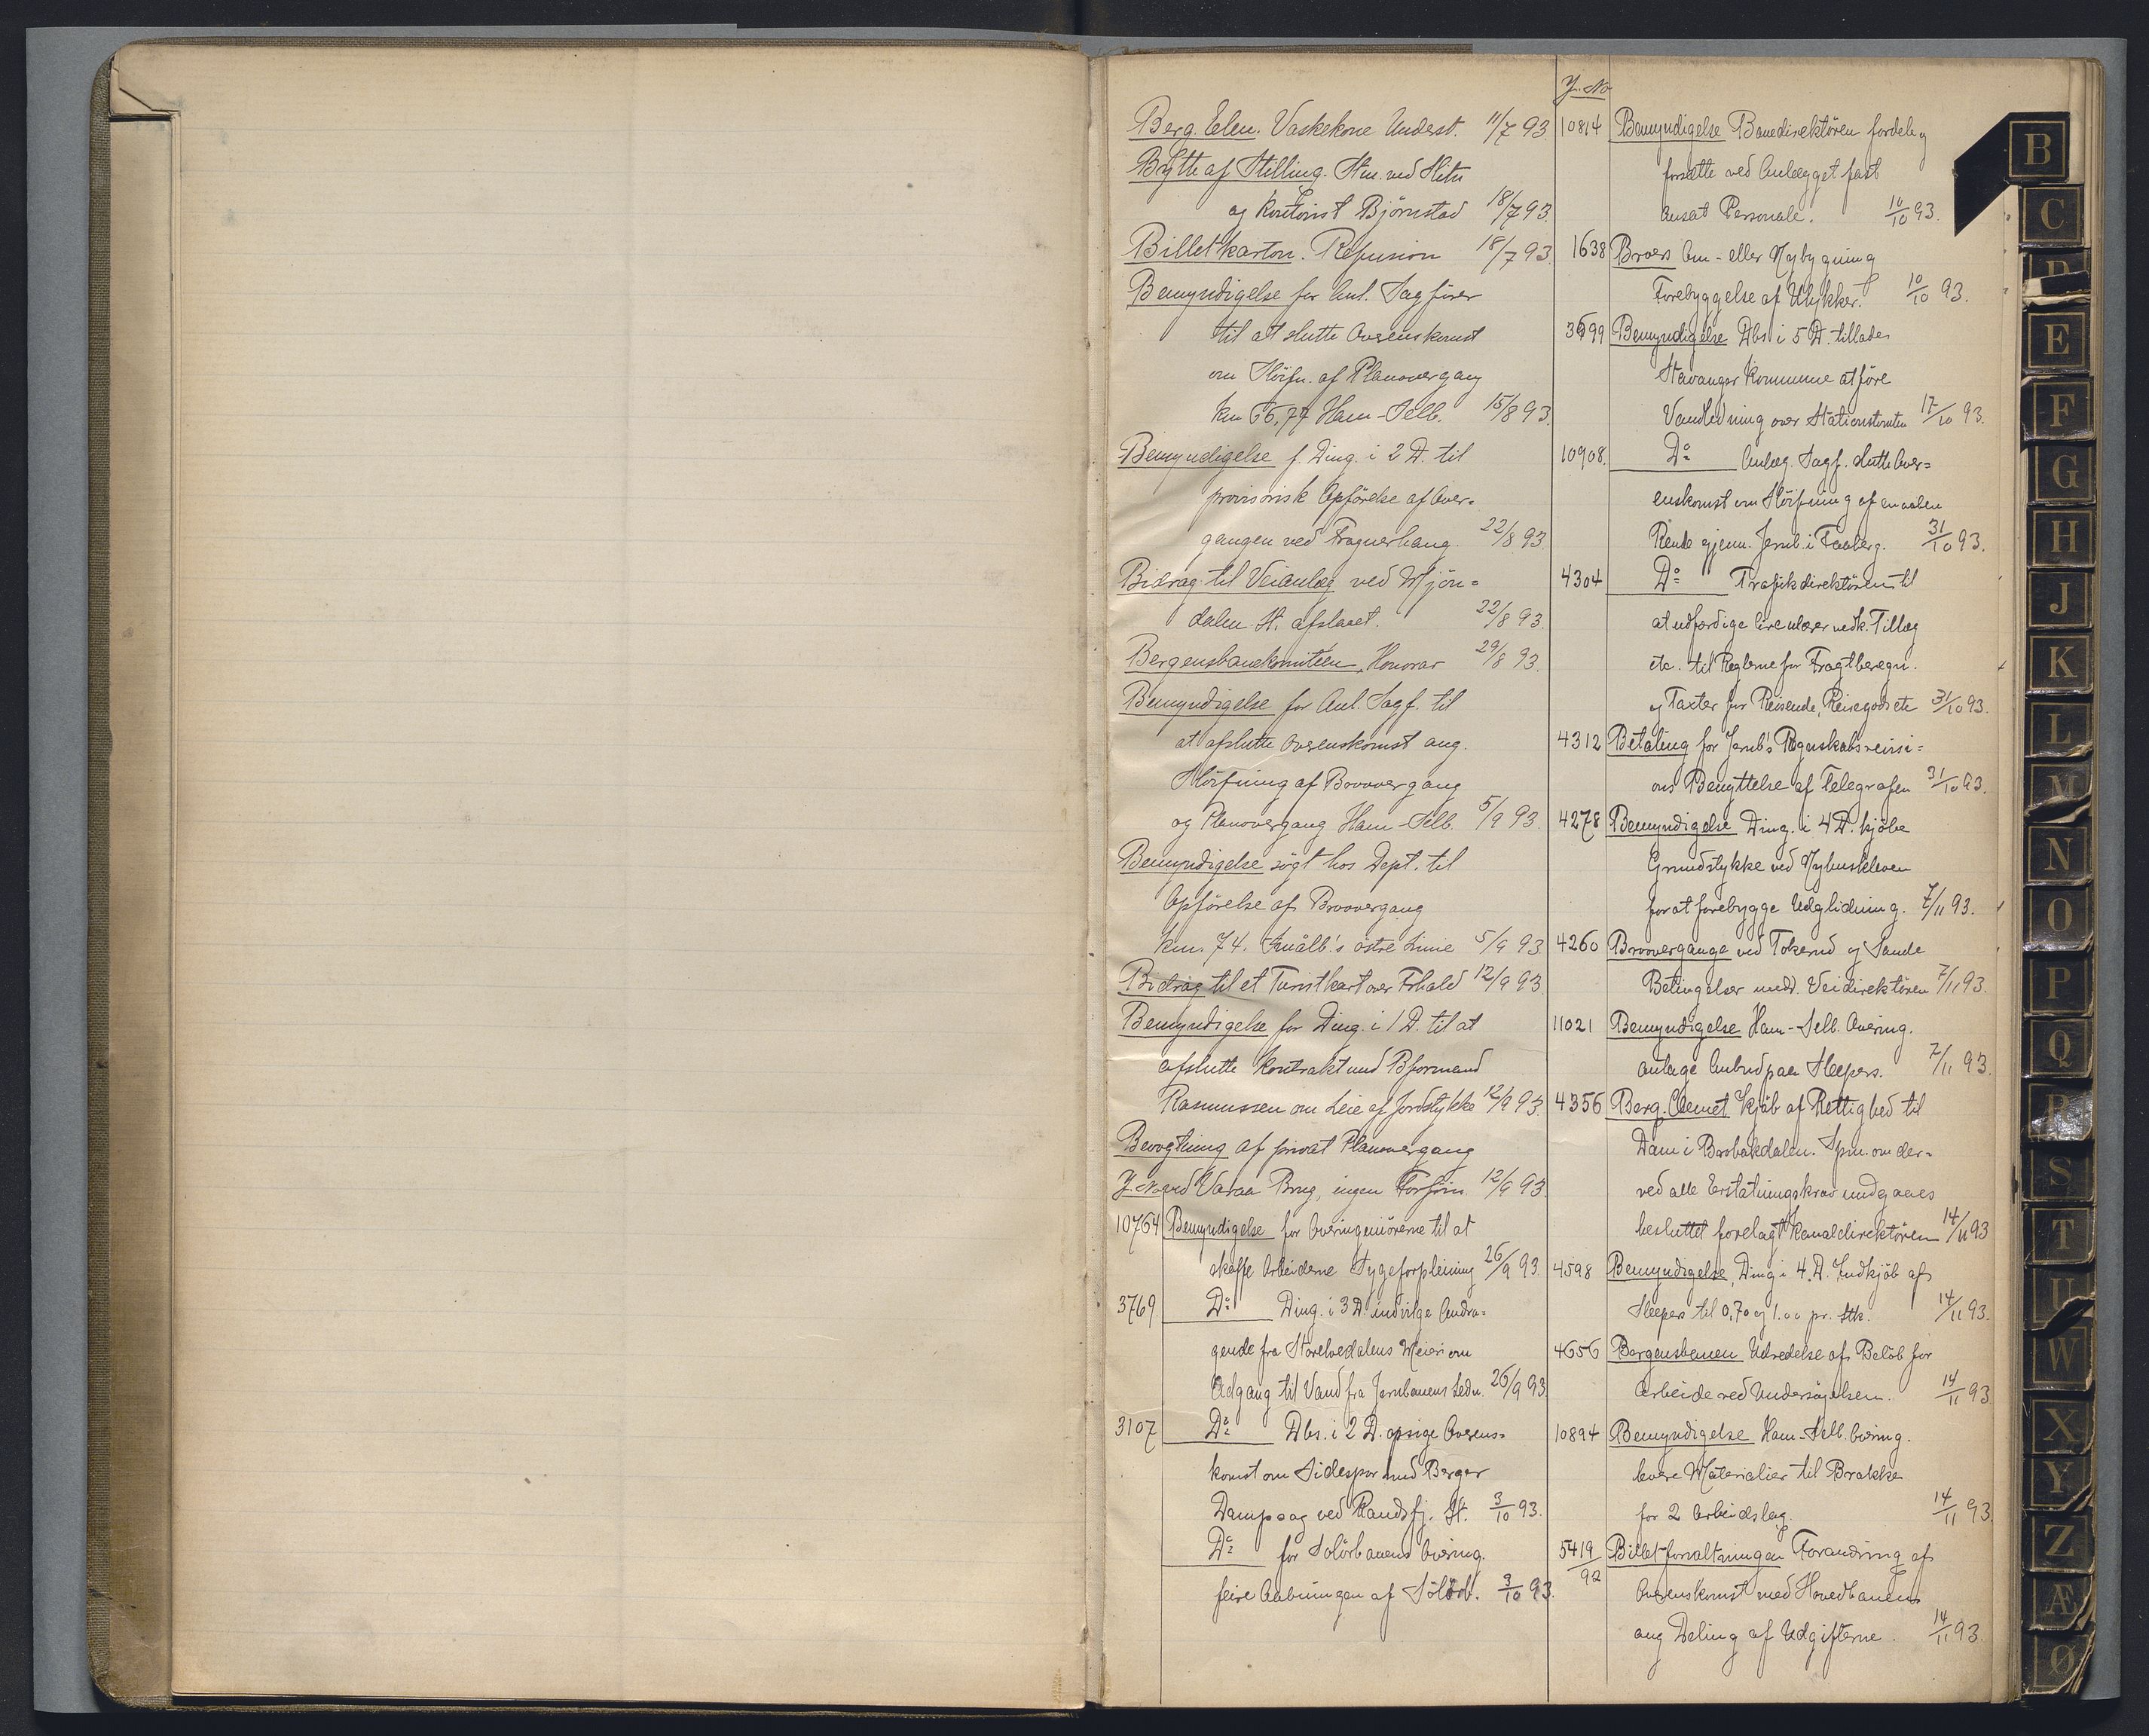 Berg. Elen. Vaskekone Underst. 11/7 93
Bytte af Stilling. Stm. ved Hitn
og Kontorist Björnstad 18/7 93.
Billetkarton. Refusion 18/7 93.
Bemyndigelse for Anl. Sagförer
til at slutte Overenskomst
om Slöifn. af Planovergang
km 66,77 Ham-Selb. 15/8 93.
Bemyndigelse f. Ding. i 2 D. til
provisorisk Opförelse af Over-
gangen ved Frognerhaug 22/8 93.
Bidrag til Veianlæg ved Mjön-
dalen St. afslaaet. 22/8 93.
Bergensbanekomiteen, Honorar 29/8 93.
Bemyndigelse for Anl. Sagf. til
at afslutte Overenskomst ang.
Slöifning af Broovergang
og Planovergang Ham-Selb. 5/9 93.
Bemyndigelse sögt hos Dept. til
Opförelse af Broovergang
km. 74. Smålb's östre Linie 5/9 93
Bidrag til et Turistkart over Frhald 12/9 93.
Bemyndigelse for Ding. i 1 D. til at
afslutte Kontrakt med Bformand
Rasmussen om Leie af Jordstykke 12/9 93.
Bevogtning af privat Planovergang
J. No ved Varaa Brug, ingen Forföin. 12/9 93.
10764 Bemyndigelse for Overingeniörerne til at
skaffe Arbeiderne Sygeforpleining 26/9 93.
3769 Do Ding. i 3 D. indvilge Andra-
gende fra Storelvedalens Meieri om
Adgang til Vand fra Jernbanens Ledn. 26/9 93
3107 Do Dbs. i 2 D. opsige Overens-
komst om Sidespor med Berger
Dampsag ved Randsfj. St. 3/10 93.
Do for Solörbanens Overing.
feire Aabningen af Solörb. 3/10 93.
J. No
10814 Bemyndigelse Banedirektören fordele og
forsætte ved Anlægget fast
ansat Personale. 10/10 93.
1638 Broers Om- eller Nybygning
Forebyggelse af Ulykker. 10/10 93.
3699 Bemyndigelse Dbs. i 5 D. tillades
Stavanger Kommune at före
Vandledning over Stationstomten 17/10 93.
10908. Do Anlæg. Sagf. slutte Over-
enskomst om Slöifning af en aaben
Rende gjenn. Jernb. i Faaberg. 31/10 93.
4304 Do Trafikdirektören til
at udfærdige Circulærer vedk. Tillæg
etc. til Reglerne for Fragtberegn.
og Taxter for Reisende, Reisegods etc 31/10 93.
4312 Betaling for Jernb's Regnskabsrevisi-
ons Benyttelse af Telegrafen 31/10 93.
4278 Bemyndigelse Ding. i 4 D. kjöbe
Grundstykke ved Nyhuskleven
for at forebygge Udglidning. 7/11 93.
4260 Broovergange ved Tokerud og Sande
Betingelser medd. Veidirektören 7/11 93.
11021 Bemyndigelse Ham-Selb. Overing.
antage Anbud paa Sleepers. 7/11 93.
4356 Berg. Clemet Kjöb af Rettighed til
Dam i Brobakdalen. Spm. om der-
ved alle Erstatningskrav undgaaes
besluttet forelagt Kanaldirektören 14/11 93
4598 Bemyndigelse, Ding i 4. D. Indkjöb af
Sleepers til 0,70 og 1.00 pr. Stk. 14/11 93.
4656 Bergensbanen Udredelse af Belöb for
Arbeide ved Undersögelsen. 14/11 93
10894 Bemyndigelse Ham-Selb. Overing.
levere Materialier til Brakke
for 2 Arbeidslag. 14/11 93.
5419/92 Billetforvaltningen Forandring af
Overenskomst med Hovedbanen
ang Deling af Udgifterne. 14/11 93.
B
C
D
E
F
G
H
J
K
L
M
N
O
P
Q
R
S
T
U
W
X
Y
Z
Æ
Ø